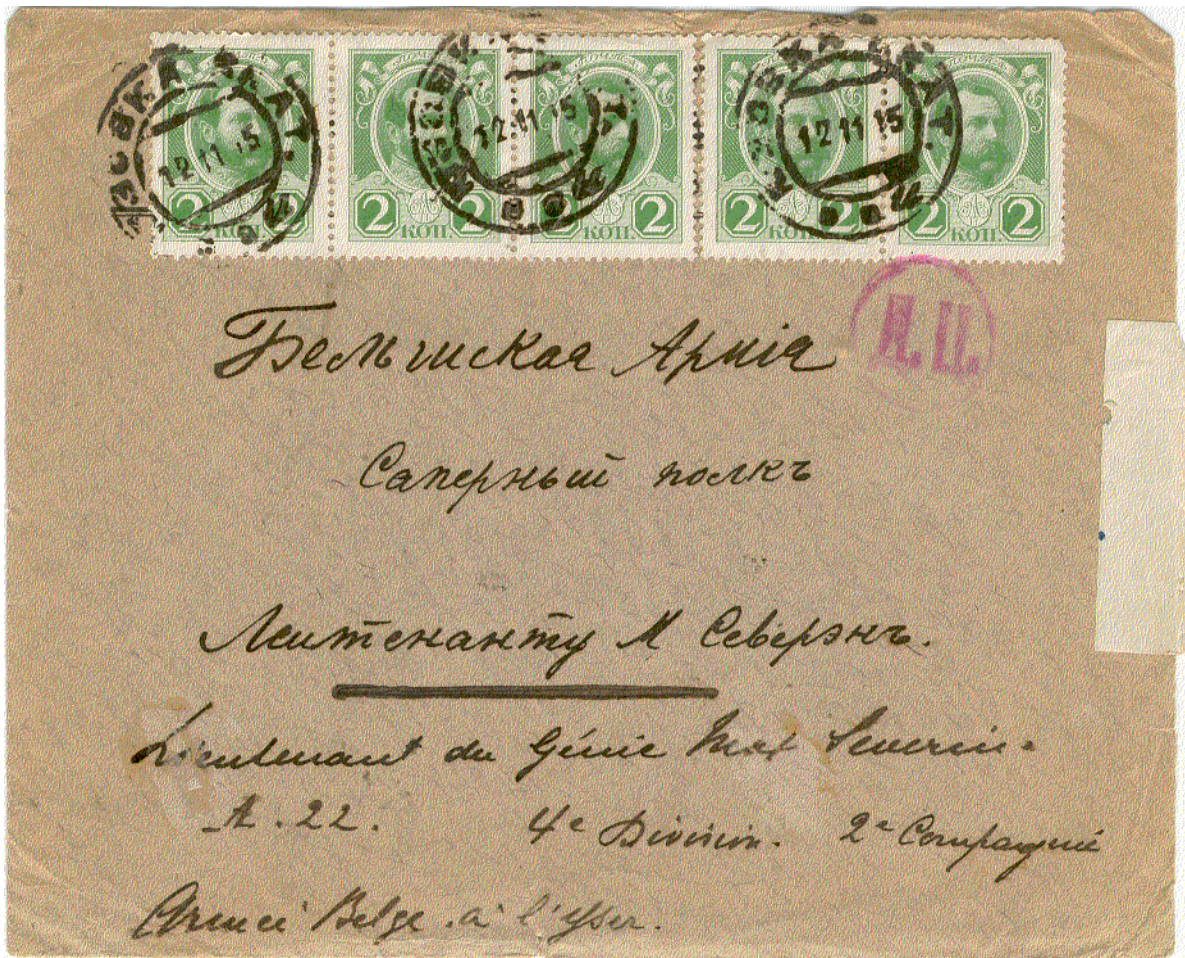 ЮЗОВКА ЕКАТ. 12.11.15
2 КОП. 2 2 КОП. 2 2 КОП. 2 2 КОП. 2 2 КОП. 2
Д. Ц.
Бельгийская Армія
Саперный полкъ
Лейтенанту М Северэнъ.
Lieutenant du Génie Max Severin-
A. 22. 4e Division. 2e Compagnie
Armée Belge. à l'Yser.